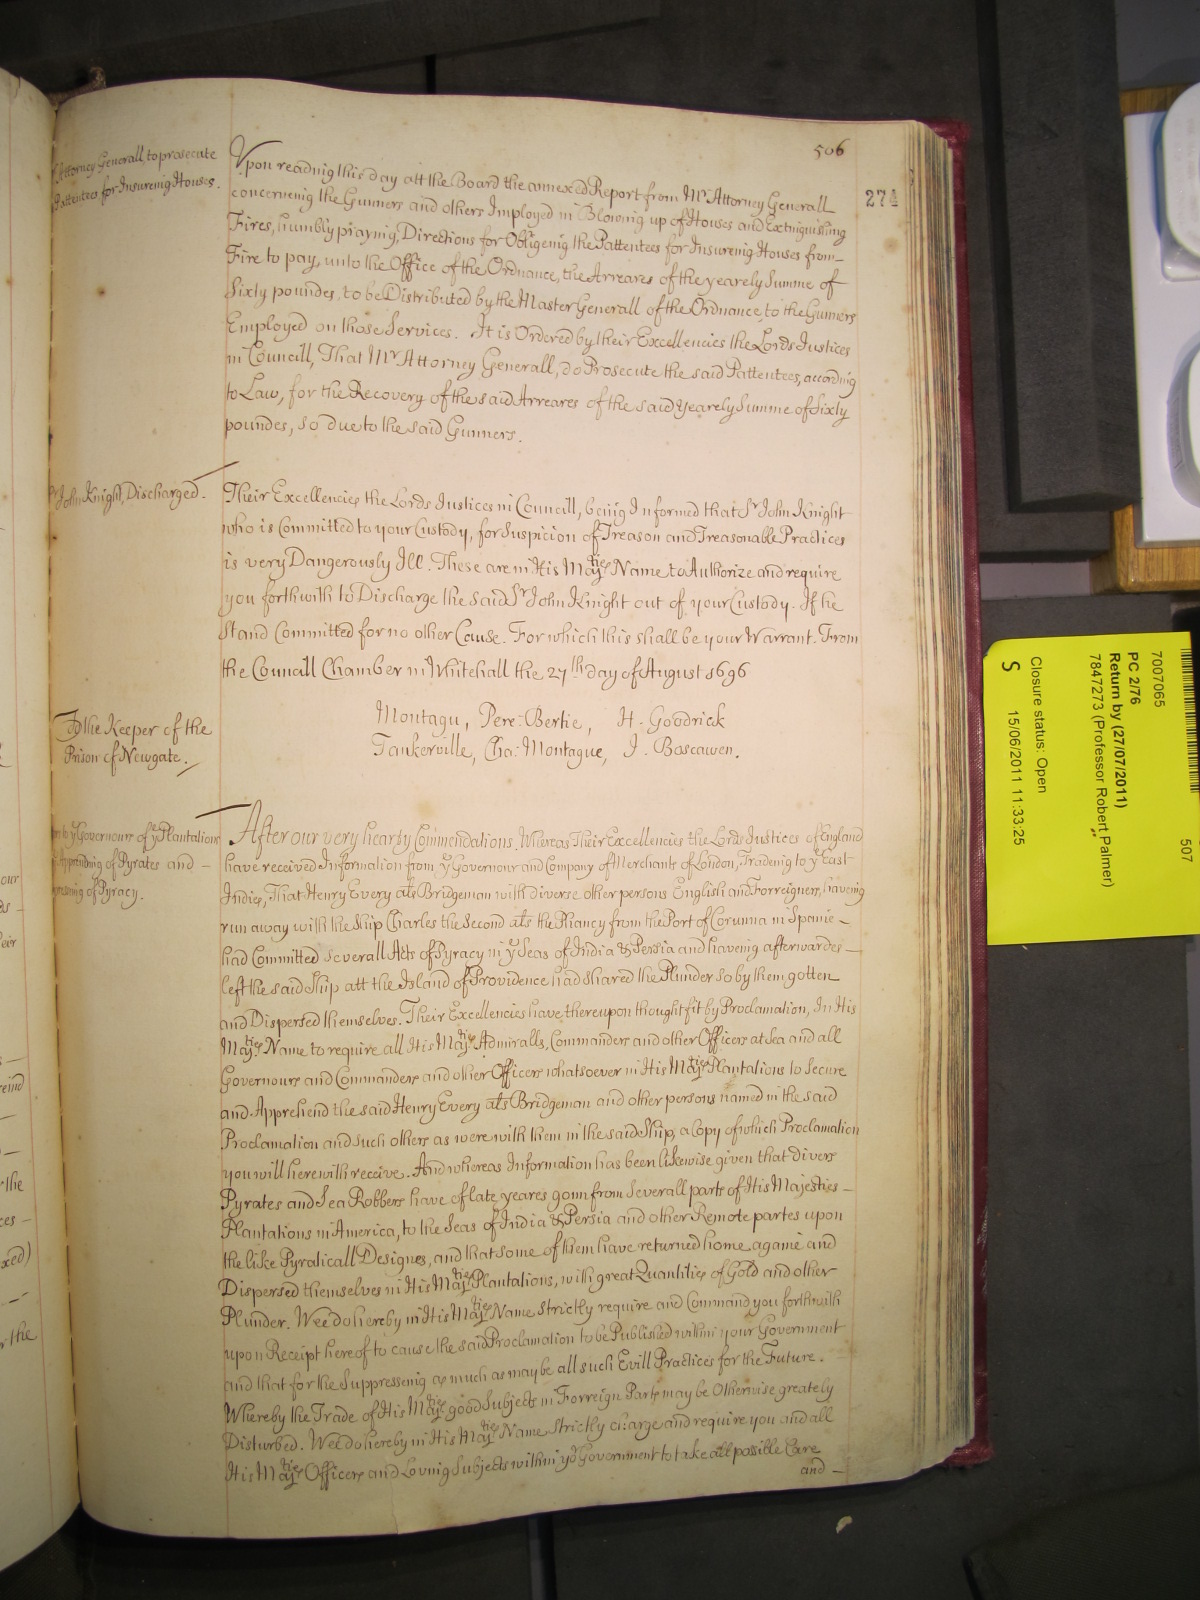 506
274
Attorney Generall to prosecute
Pattentees for Insureing Houses.
Upon reading this day att the Board the annexed Report from Mr. Attorney Generall
concerneing the Gunners and others Imployed in Blowing up of Houses and Extinguishing
Fires, humbly praying, Directions for Obligeing the Pattentees for Insureing Houses from
Fire to pay, unto the Office of the Ordnance, the Arreares of the yearely Summe of
Sixty poundes, to be Distributed by the Master Generall of the Ordnance, to the Gunners
Employed on those Services. It is Ordered by their Excellencies the Lords Justices
in Councill, That Mr. Attorney Generall, do Prosecute the said Pattentees, according
to Law, for the Recovery of the said Arreares of the said yearely Summe of Sixty
poundes, so due to the said Gunners.
Sr. John Knight, Discharged.
Their Excellencies the Lords Justices in Councill, being Informed that Sr. John Knight
who is Committed to your Custody, for Suspicion of Treason and Treasonable Practices
is very Dangerously Ill. These are in His Majties Name to Authorize and require
you forthwith to Discharge the said Sr. John Knight out of your Custody. If he
Stand Committed for no other Cause. For which this shall be your Warrant. From
the Councill Chamber in Whitehall the 27th day of August 1696
Montagu, Pere: Bertie, H. Goodrick
Tankerville, Cha: Montague, J. Boscawen.
To the Keeper of the
Prison of Newgate.
to ye Governours of ye Plantations
Apprehending of Pyrates and
of Pyracy.
After our very hearty Commendations. Whereas Their Excellencies the Lords Justices of England
have received Information from ye Governour and Company of Merchants of London, Tradeing to ye East
Indies, That Henry Every als Bridgeman with diverse other persons English and Forreigners, haveing
run away with the Ship Charles the Second als the Phancy from the Port of Corunna in Spaine
had Committed severall Acts of Pyracy in ye Seas of India & Persia and haveing afterwardes
left the said Ship att the Island of Providence had shared the Plunder so by them gotten
and Dispersed themselves. Their Excellencies have thereupon thought fit by Proclamation, In His
Majties Name to require all His Majties Admiralls, Commanders and other Officers at Sea and all
Governours and Commanders and other Officers whatsoever in His Majties Plantations to Secure
and Apprehend the said Henry Every als Bridgeman and other persons named in the said
Proclamation and such others as were with them in the said Ship, a Copy of which Proclamation
you will herewith receive. And whereas Information has been likewise given that divers
Pyrates and Sea Robbers have of late yeares gonn from Severall parts of His Majesties
Plantations in America, to the Seas of India & Persia and other Remote partes upon
the like Pyraticall Designes, and that some of them have returned home againe and
Dispersed themselves in His Majties Plantations, with great Quantities of Gold and other
Plunder. Wee do hereby in His Majties Name Strictly require and Command you forthwith
upon Receipt hereof to cause the said Proclamation to be Published within your Government
and that for the Suppressing as much as may be all such Evill Practices for the Future.
Whereby the Trade of His Majties good Subjects in Forreign Parts may be Otherwise greately
Disturbed. Wee do hereby in His Majties Name Strictly charge and require you and all
His Majties Officers and Loving Subjects within yor Government to take all possible Care
and
7007065
PC 2/76
Return by (27/07/2011)
7847273 (Professor Robert Palmer)
Closure status: Open
S 15/06/2011 11:33:25
507